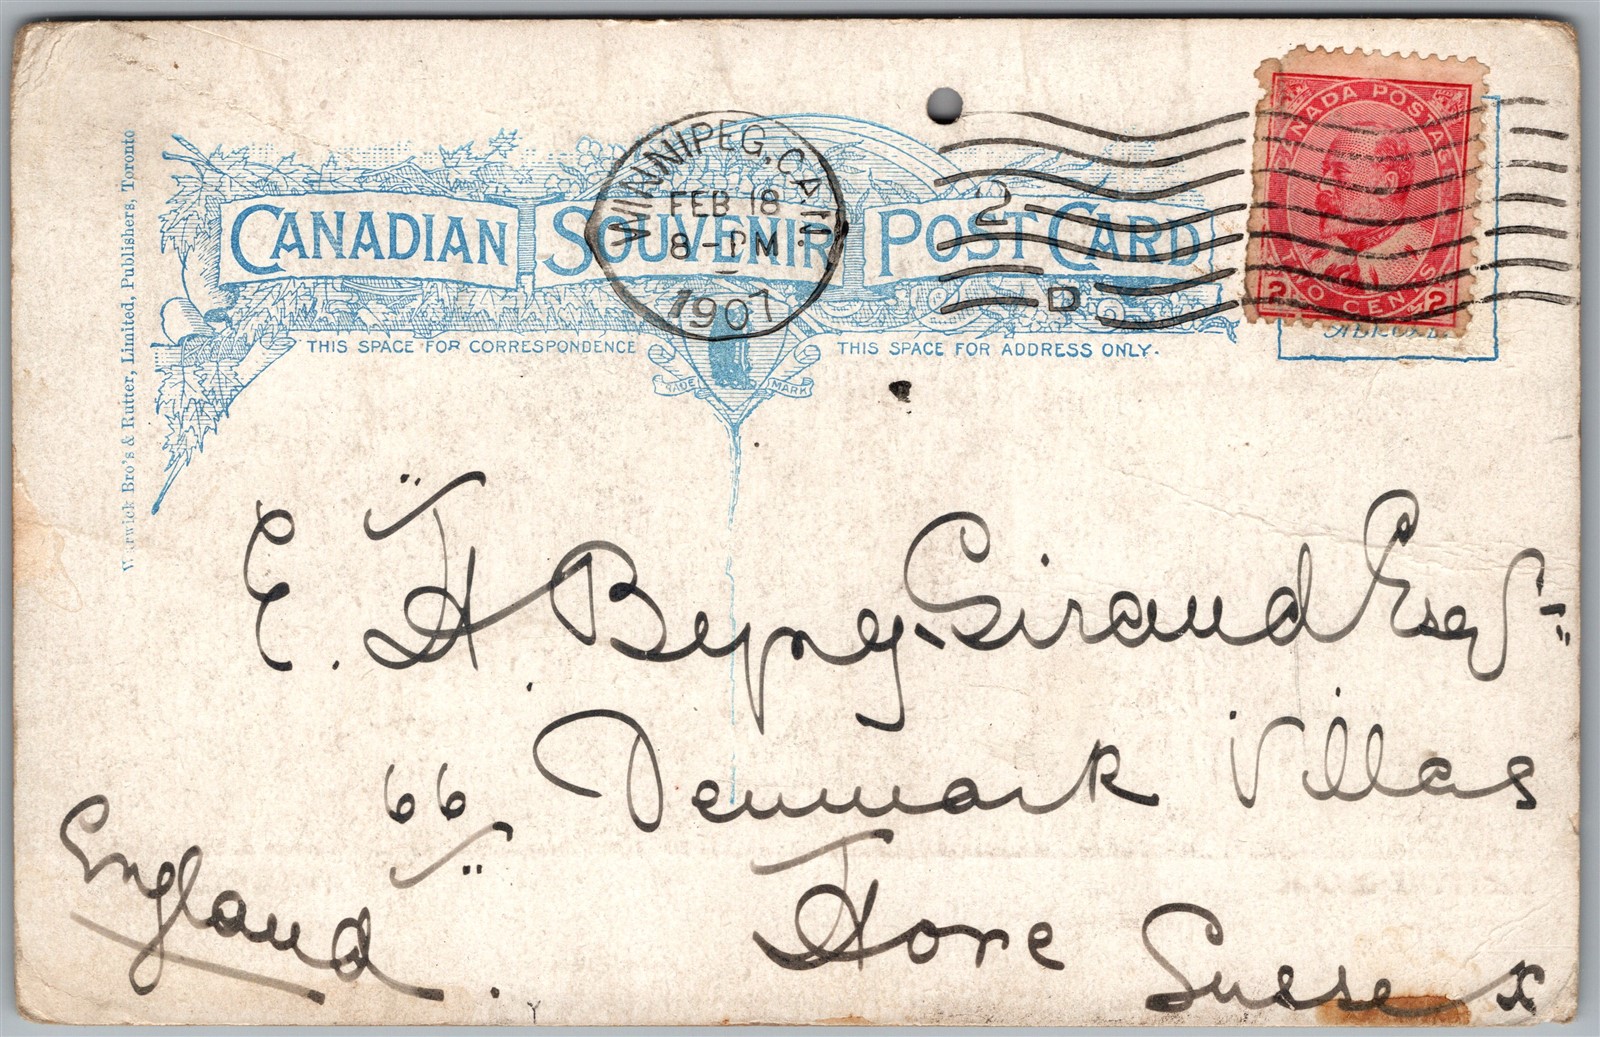 CANADIAN SOUVENIR POST CARD
WINNIPEG, CAN.
FEB 18
8-PM
1907
2
D
CANADA POSTAGE
2 TWO CENTS 2
THIS SPACE FOR CORRESPONDENCE
THIS SPACE FOR ADDRESS ONLY.
TRADE MARK
Warwick Bro's & Rutter, Limited, Publishers, Toronto
E. H Bepny-Giraud Esq
66 Denmark Villas
Hove
Sussex
England.